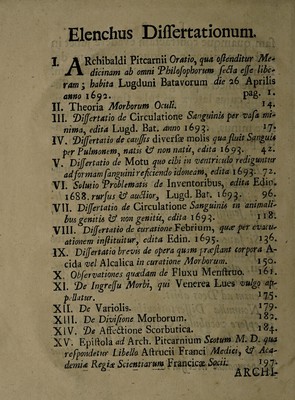 Elenchus Dissertationum.
I. ARchibaldi Pitcarnii Oratio, qua ostenditur Me-
dicinam ab omni Philosophorum secta esse libe-
ram; habita Lugduni Batavorum die 26 Aprilis
anno 1692. pag. 1.
II. Theoria Morborum Oculi. 14.
III. Dissertatio de Circulatione Sanguinis per vasa mi-
nima, edita Lugd. Bat. anno 1693. 17.
IV. Dissertatio de caussis diversæ molis qua fluit Sanguis
per Pulmonem, natis & non natis, edita 1693. 42.
V. Dissertatio de Motu quo cibi in ventriculo rediguntur
ad formam sanguini reficiendo idoneam, edita 1693. 72.
VI. Solutio Problematis de Inventoribus, edita Edin.
1688. rursus & auctior, Lugd. Bat. 1693. 96.
VII. Dissertatio de Circulatione Sanguinis in animali-
bus genitis & non genitis, edita 1693. 118.
VIII. Dissertatio de curatione Febrium, quæ per evacu-
ationem instituitur, edita Edin. 1695. 136.
IX. Dissertatio brevis de opera quam præstant corpora A-
cida vel Alcalica in curatione Morborum. 150.
X. Observationes quædam de Fluxu Menstruo. 161.
XI. De Ingressu Morbi, qui Venerea Lues vulgo ap-
pellatur. 175.
XII. De Variolis. 179.
XIII. De Divisione Morborum. 182.
XIV. De Affectione Scorbutica. 184.
XV. Epistola ad Arch. Pitcarnium Scotum M. D. qua
respondetur Libello Astrucii Franci Medici, & Aca-
demiæ Regiæ Scientiarum Francicæ Socii. 197.
ARCHI-